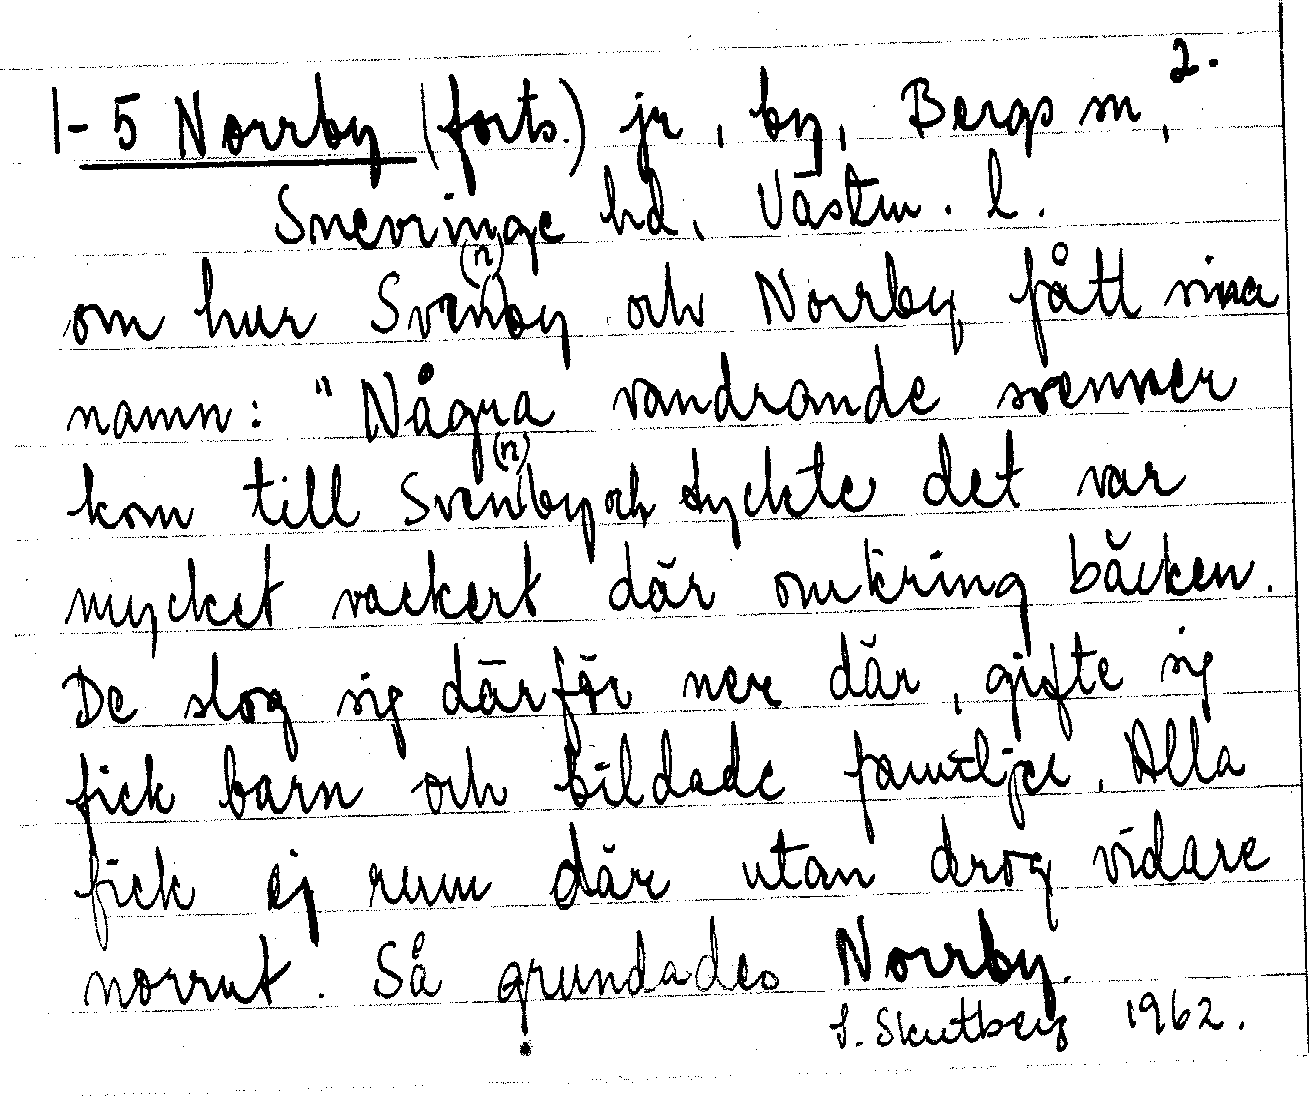 2.
1-5 Norrby (forts.) jr, by, Bergs sn,
Snevringe hd, Västm. l.
om hur Sven(n)by och Norrby fått sina
namn: "Några vandrande svenner
kom till Sven(n)by och tyckte det var
mycket vackert där omkring bäcken.
De slog sig därför ner där, gifte sig
fick barn och bildade familjer. Alla
fick ej rum där utan drog vidare
norrut. Så grundades Norrby.
S. Skutberg 1962.